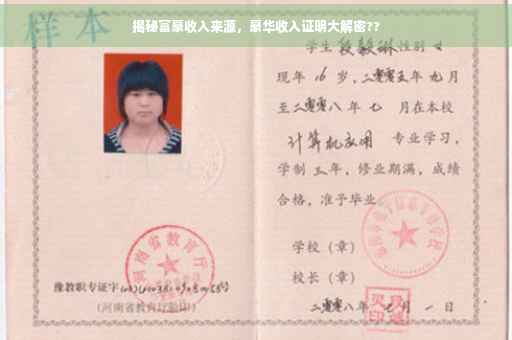 样本
揭秘富豪收入来源，豪华收入证明大解密??
学生段毅琳性别女
现年16岁，二零零五年九月
至二零零八年七月在本校
计算机应用 专业学习，
学制三年，修业期满，成绩
合格，准予毕业
学校（章）
校长（章）
二零零八年七月一日
河南省教育厅
豫教职专证字
(河南省教育厅验印)